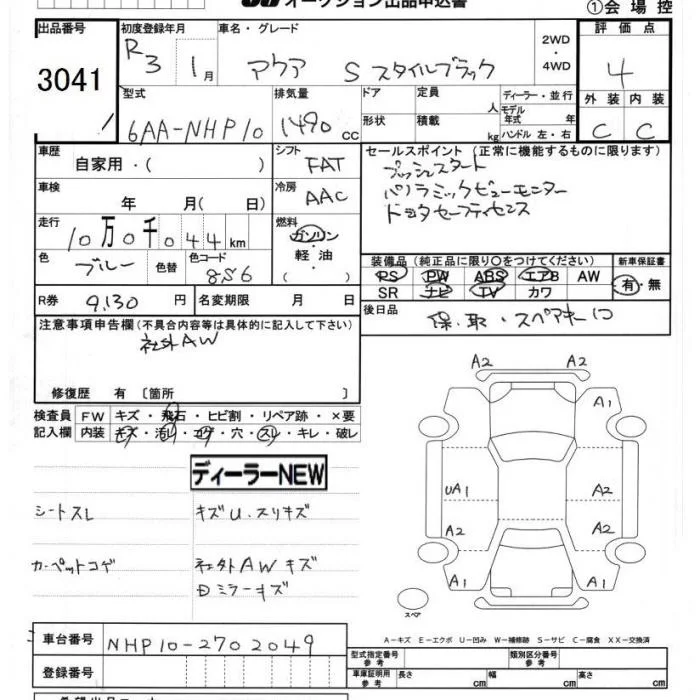 オークション出品申込書
①会場控
出品番号
3041
初度登録年月
R3 1月
車名・グレード
アクア Sスタイルブラック
2WD
・
4WD
評価点
4
外装 内装
C C
型式
6AA-NHP10
排気量
1490 cc
ドア
形状
定員 人
積載 kg
ディーラー・並行
モデル
年式 年
ハンドル 左・右
車歴
自家用・( )
シフト
FAT
車検
年 月( 日)
冷房
AAC
走行
10万0千044 km
燃料
ガソリン
軽油
( )
色
ブルー
色替
色コード
8S6
R券 9,130 円
名変期限 月 日
セールスポイント (正常に機能するものに限ります)
プッシュスタート
パノラミックビューモニター
トヨタセーフティセンス
装備品 (純正品に限り○をつけてください)
新車保証書
PS PW ABS エアB AW
SR ナビ TV カワ
有・無
後日品
保・取・スペアキー1コ
注意事項申告欄 (不具合内容等は具体的に記入して下さい)
社外AW
修復歴 有 〔箇所 〕
検査員
記入欄
FW キズ・飛石・ヒビ割・リペア跡・×要
内装 キズ・汚れ・コゲ・穴・スレ・キレ・破レ
ディーラーNEW
シートスレ
キズU.スリキズ
カーペットコゲ
社外AWキズ
ミラーキズ
A2 A2
A1
UA1 A2
A2 A2
A1 A1
スペア
A-キズ E-エクボ U-凹み W-補修跡 S-サビ C-腐食 XX-交換済
車台番号
NHP10-2702049
登録番号
型式指定番号
参考
類別区分番号
参考
車庫証明用
参考
長さ cm 幅 cm 高さ cm